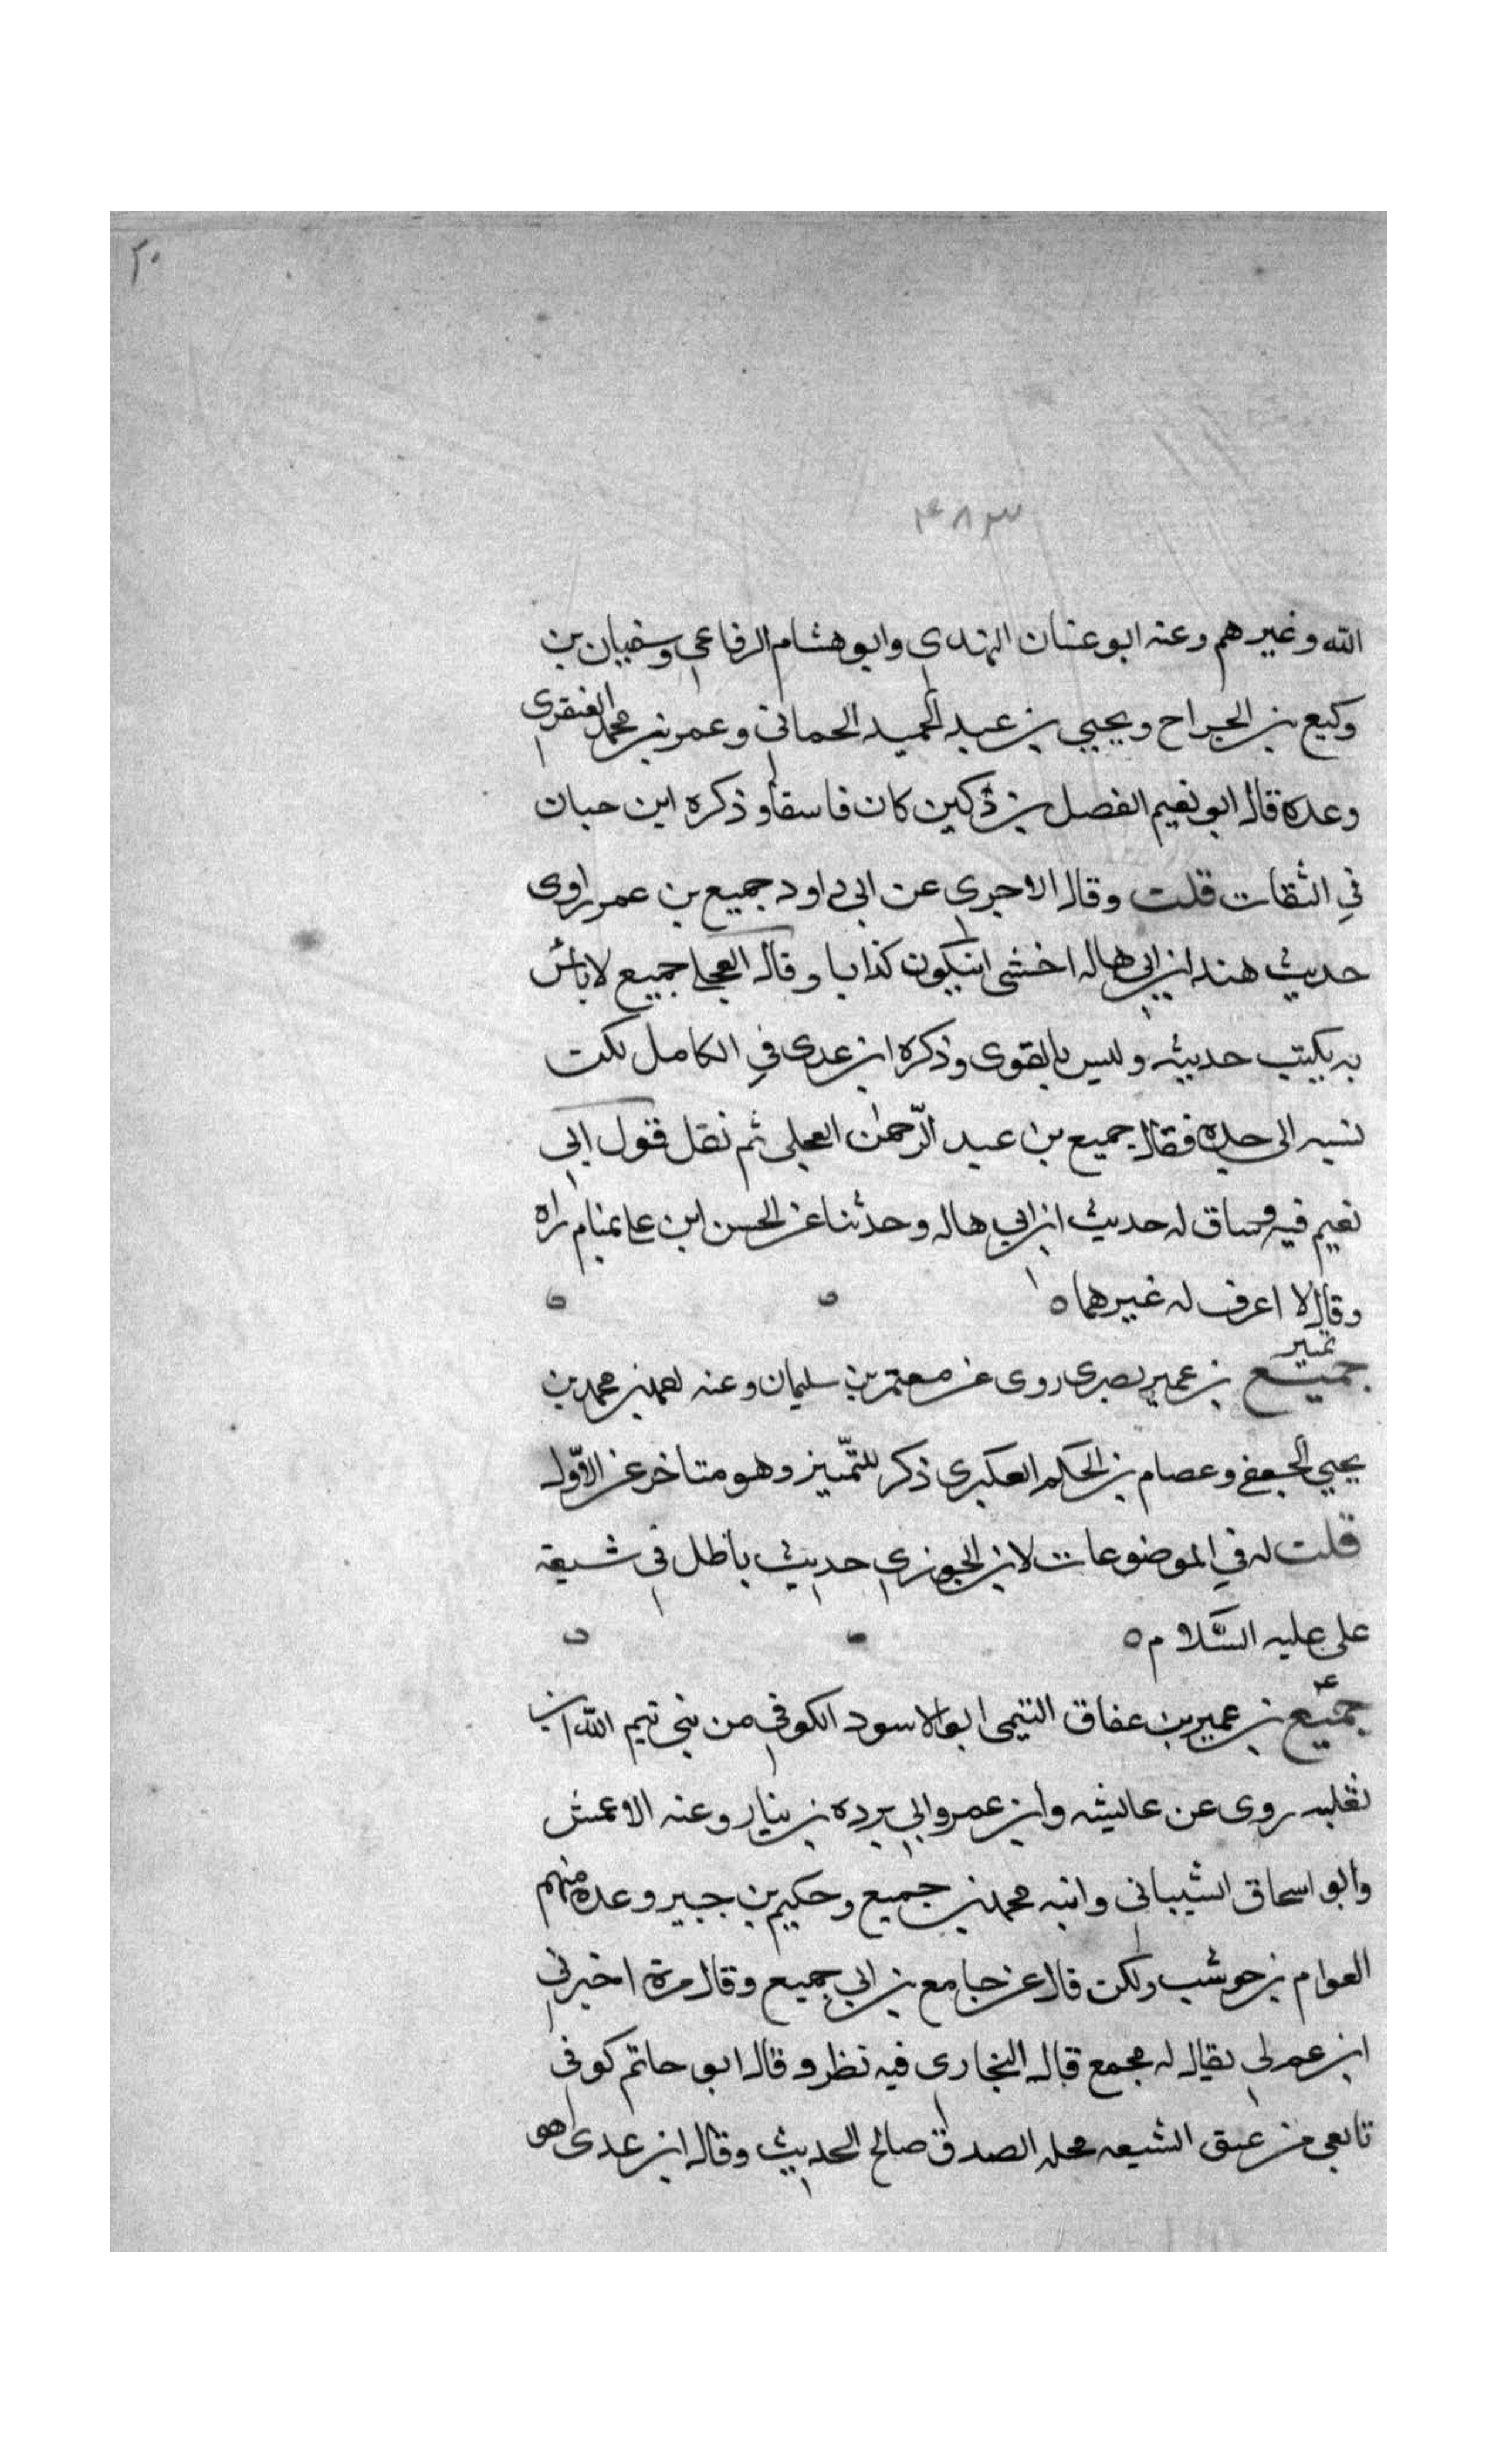 ٢٠
٤٨٣
الله وغيرهم وعنه ابو غسان النهدي وابو هشام الرفاعي وسفيان بن
وكيع بن الجراح ويحيى بن عبد الحميد الحماني وعمرو بن محمد العنقزى
وعده قال ابو نعيم الفضل بن دكين كان فاسقا وذكره ابن حبان
في الثقات قلت وقال الاجري عن ابي داود جميع بن عمر راوى
حديث هند ابن ابي هاله اخشى ان يكون كذابا وقال العجلي جميع لا باس
به يكتب حديثه وليس بالقوى وذكره ابن عدى في الكامل لكن
نسبه الى جده فقال جميع بن عبد الرحمن العجلي ثم نقل قول ابي
نعيم فيه وساق له حديث ابن ابي هاله وحدثنا عن الحسن ابن علي منام راه
وقال لا اعرف له غيرهما ه
تمييز
جميع بن عمير بصرى روى عن معتمر بن سليمان وعنه محمد بن
يحيى الجعفي وعصام بن الحكم العكبرى ذكر للتمييز وهو متاخر عن الاول
قلت له في الموضوعات لابن الجوزي حديث باطل في شيعة
على عليه السلام ه
عـ
جميع بن عمير بن عفاق التيمى ابو الاسود الكوفي من بني تيم الله ابن
ثعلبه روى عن عائيشه وابن عمر وابي برده بن نيار وعنه الاعمش
وابو اسحاق الشيباني وابنه محمد بن جميع وحكيم بن جبير وعده منهم
العوام بن حوشب ولكن قال عن جامع بن ابي جميع وقال مرة اخبرني
ابن عم لي يقال له مجمع قال البخاري فيه نظر وقال ابو حاتم كوفي
تابعي من عتق الشيعه محله الصدق صالح الحديث وقال ابن عدى هو